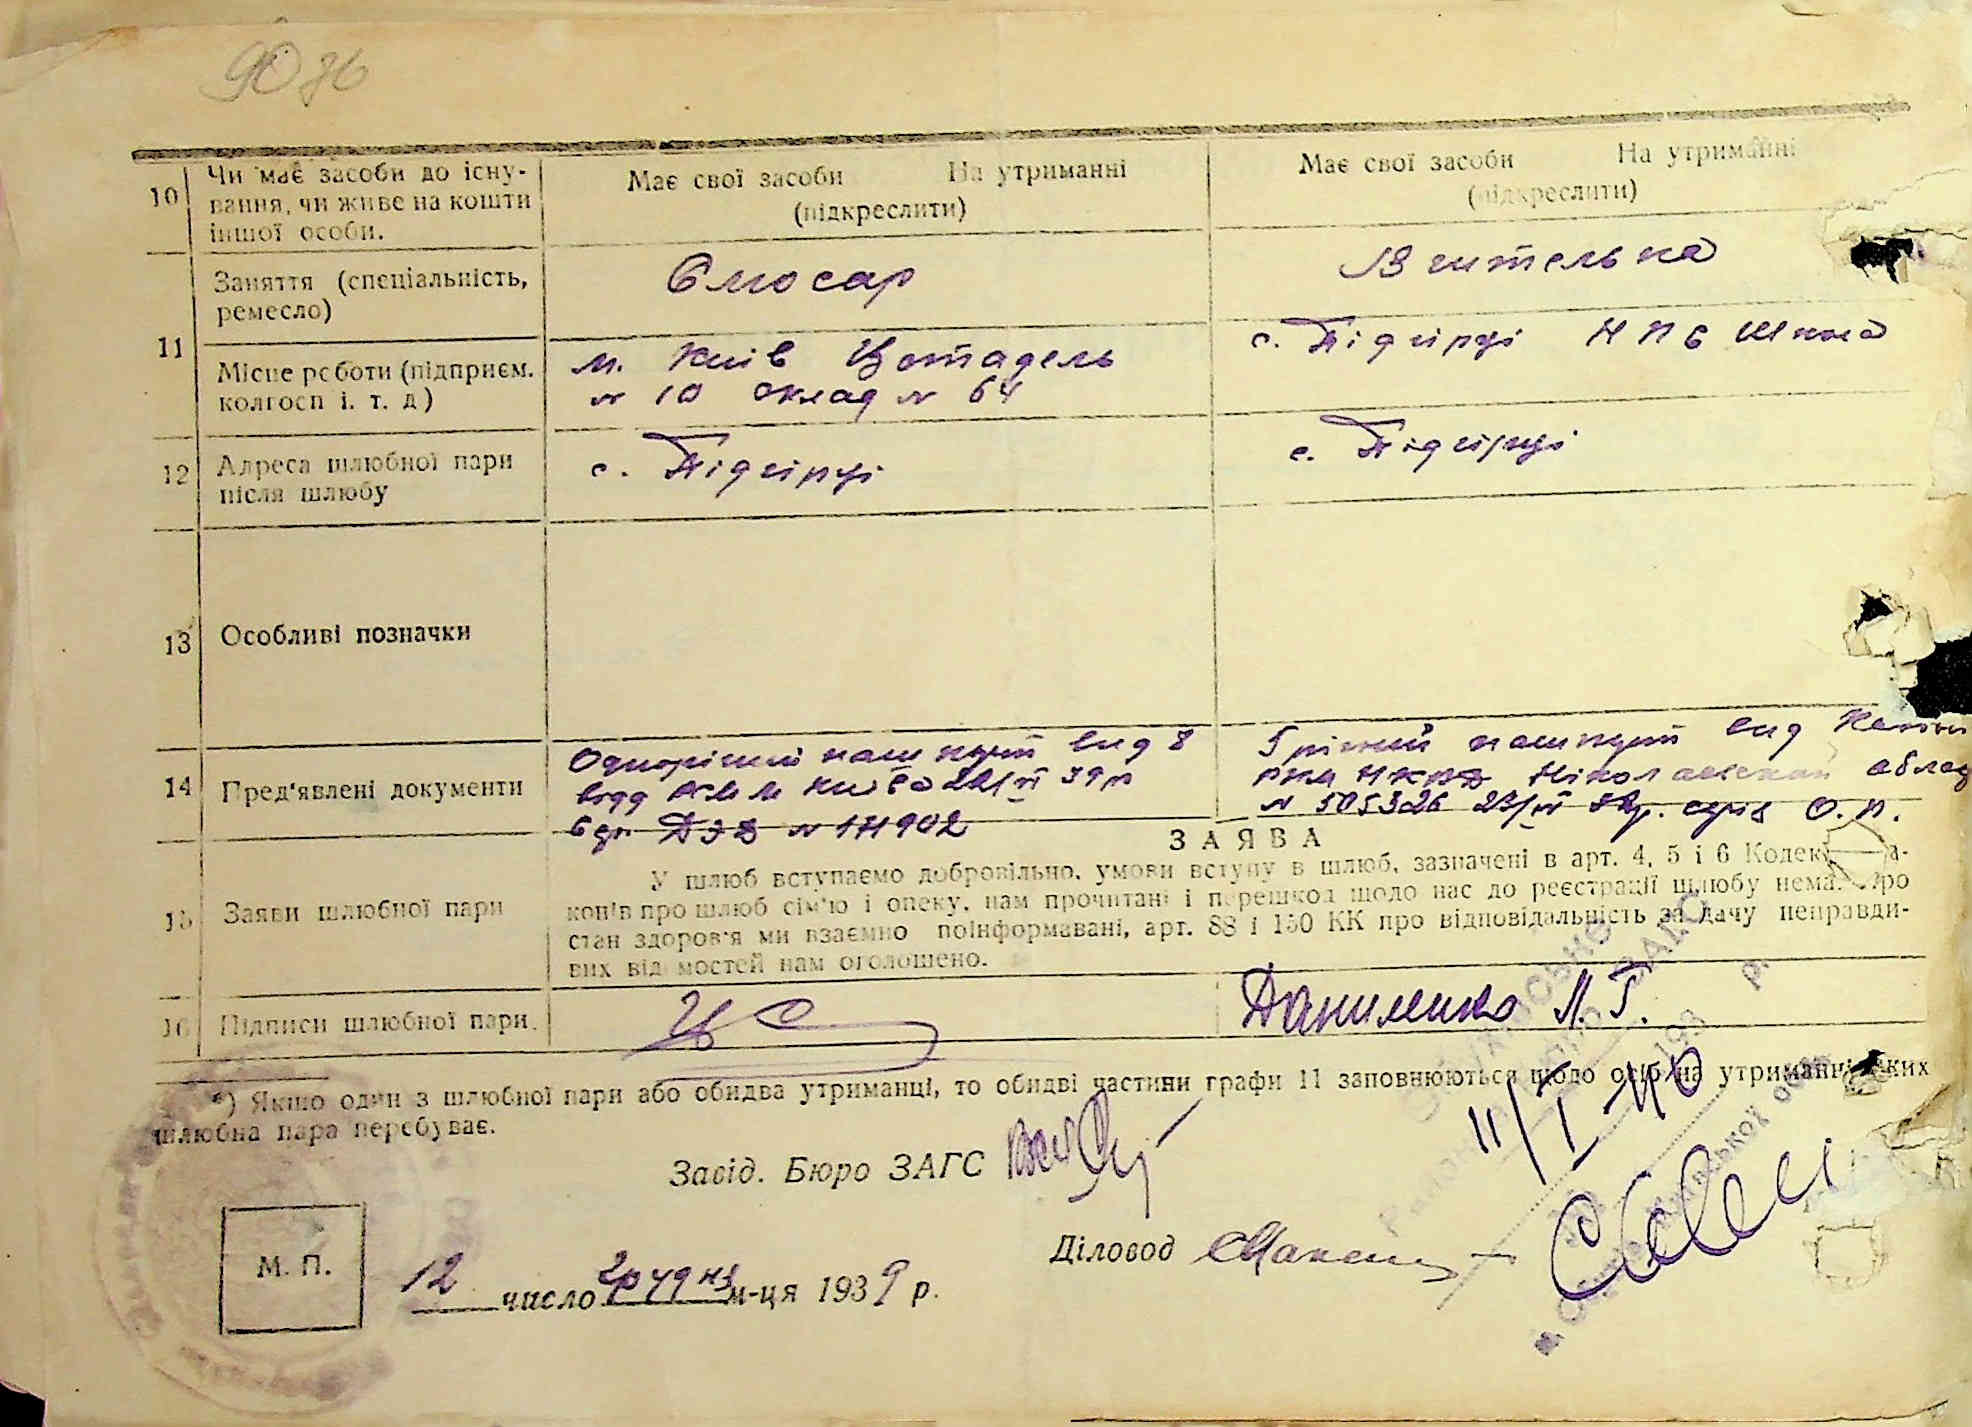 10
Чи має засоби до існу-
вання, чи живе на кошти
іншої особи.
Має свої засоби На утриманні
(підкреслити)
Має свої засоби На утриманні
(підкреслити)
11
Заняття (спеціальність,
ремесло)
Слюсар
Вчителька
Місце роботи (підприєм.
колгосп і. т. д)
м. Київ Цотадель
№ 10 склад № 64
с. Підгірці НПС школа
12
Адреса шлюбної пари
після шлюбу
с. Підгірці
с. Підгірці
13
Особливі позначки
14
Пред'явлені документи
Однорічний пашпорт вид 8
22/VI 39 р
№ 171902
5 річний пашпорт вид
РКМ НКВД области
№ 505326 О.П.
15
Заяви шлюбної пари
ЗАЯВА
У шлюб вступаємо добровільно, умови вступу в шлюб, зазначені в арт. 4, 5 і 6 Кодек а-
конів про шлюб сім'ю і опеку, нам прочитані і перешкод щодо нас до реєстрації шлюбу нема. Про
стан здоров'я ми взаємно поінформавані, арт. 88 і 150 КК про відповідальність за дачу неправди-
вих відомостей нам оголошено.
16
Підписи шлюбної пари.
Даниленко Л. Г.
*) Якщо один з шлюбної пари або обидва утриманці, то обидві частини графи 11 заповнюються щодо осіб на утриманні яких
шлюбна пара перебуває.
Завід. Бюро ЗАГС
11/I 40
Діловод
М. П.
12 число грудня м-ця 1939 р.